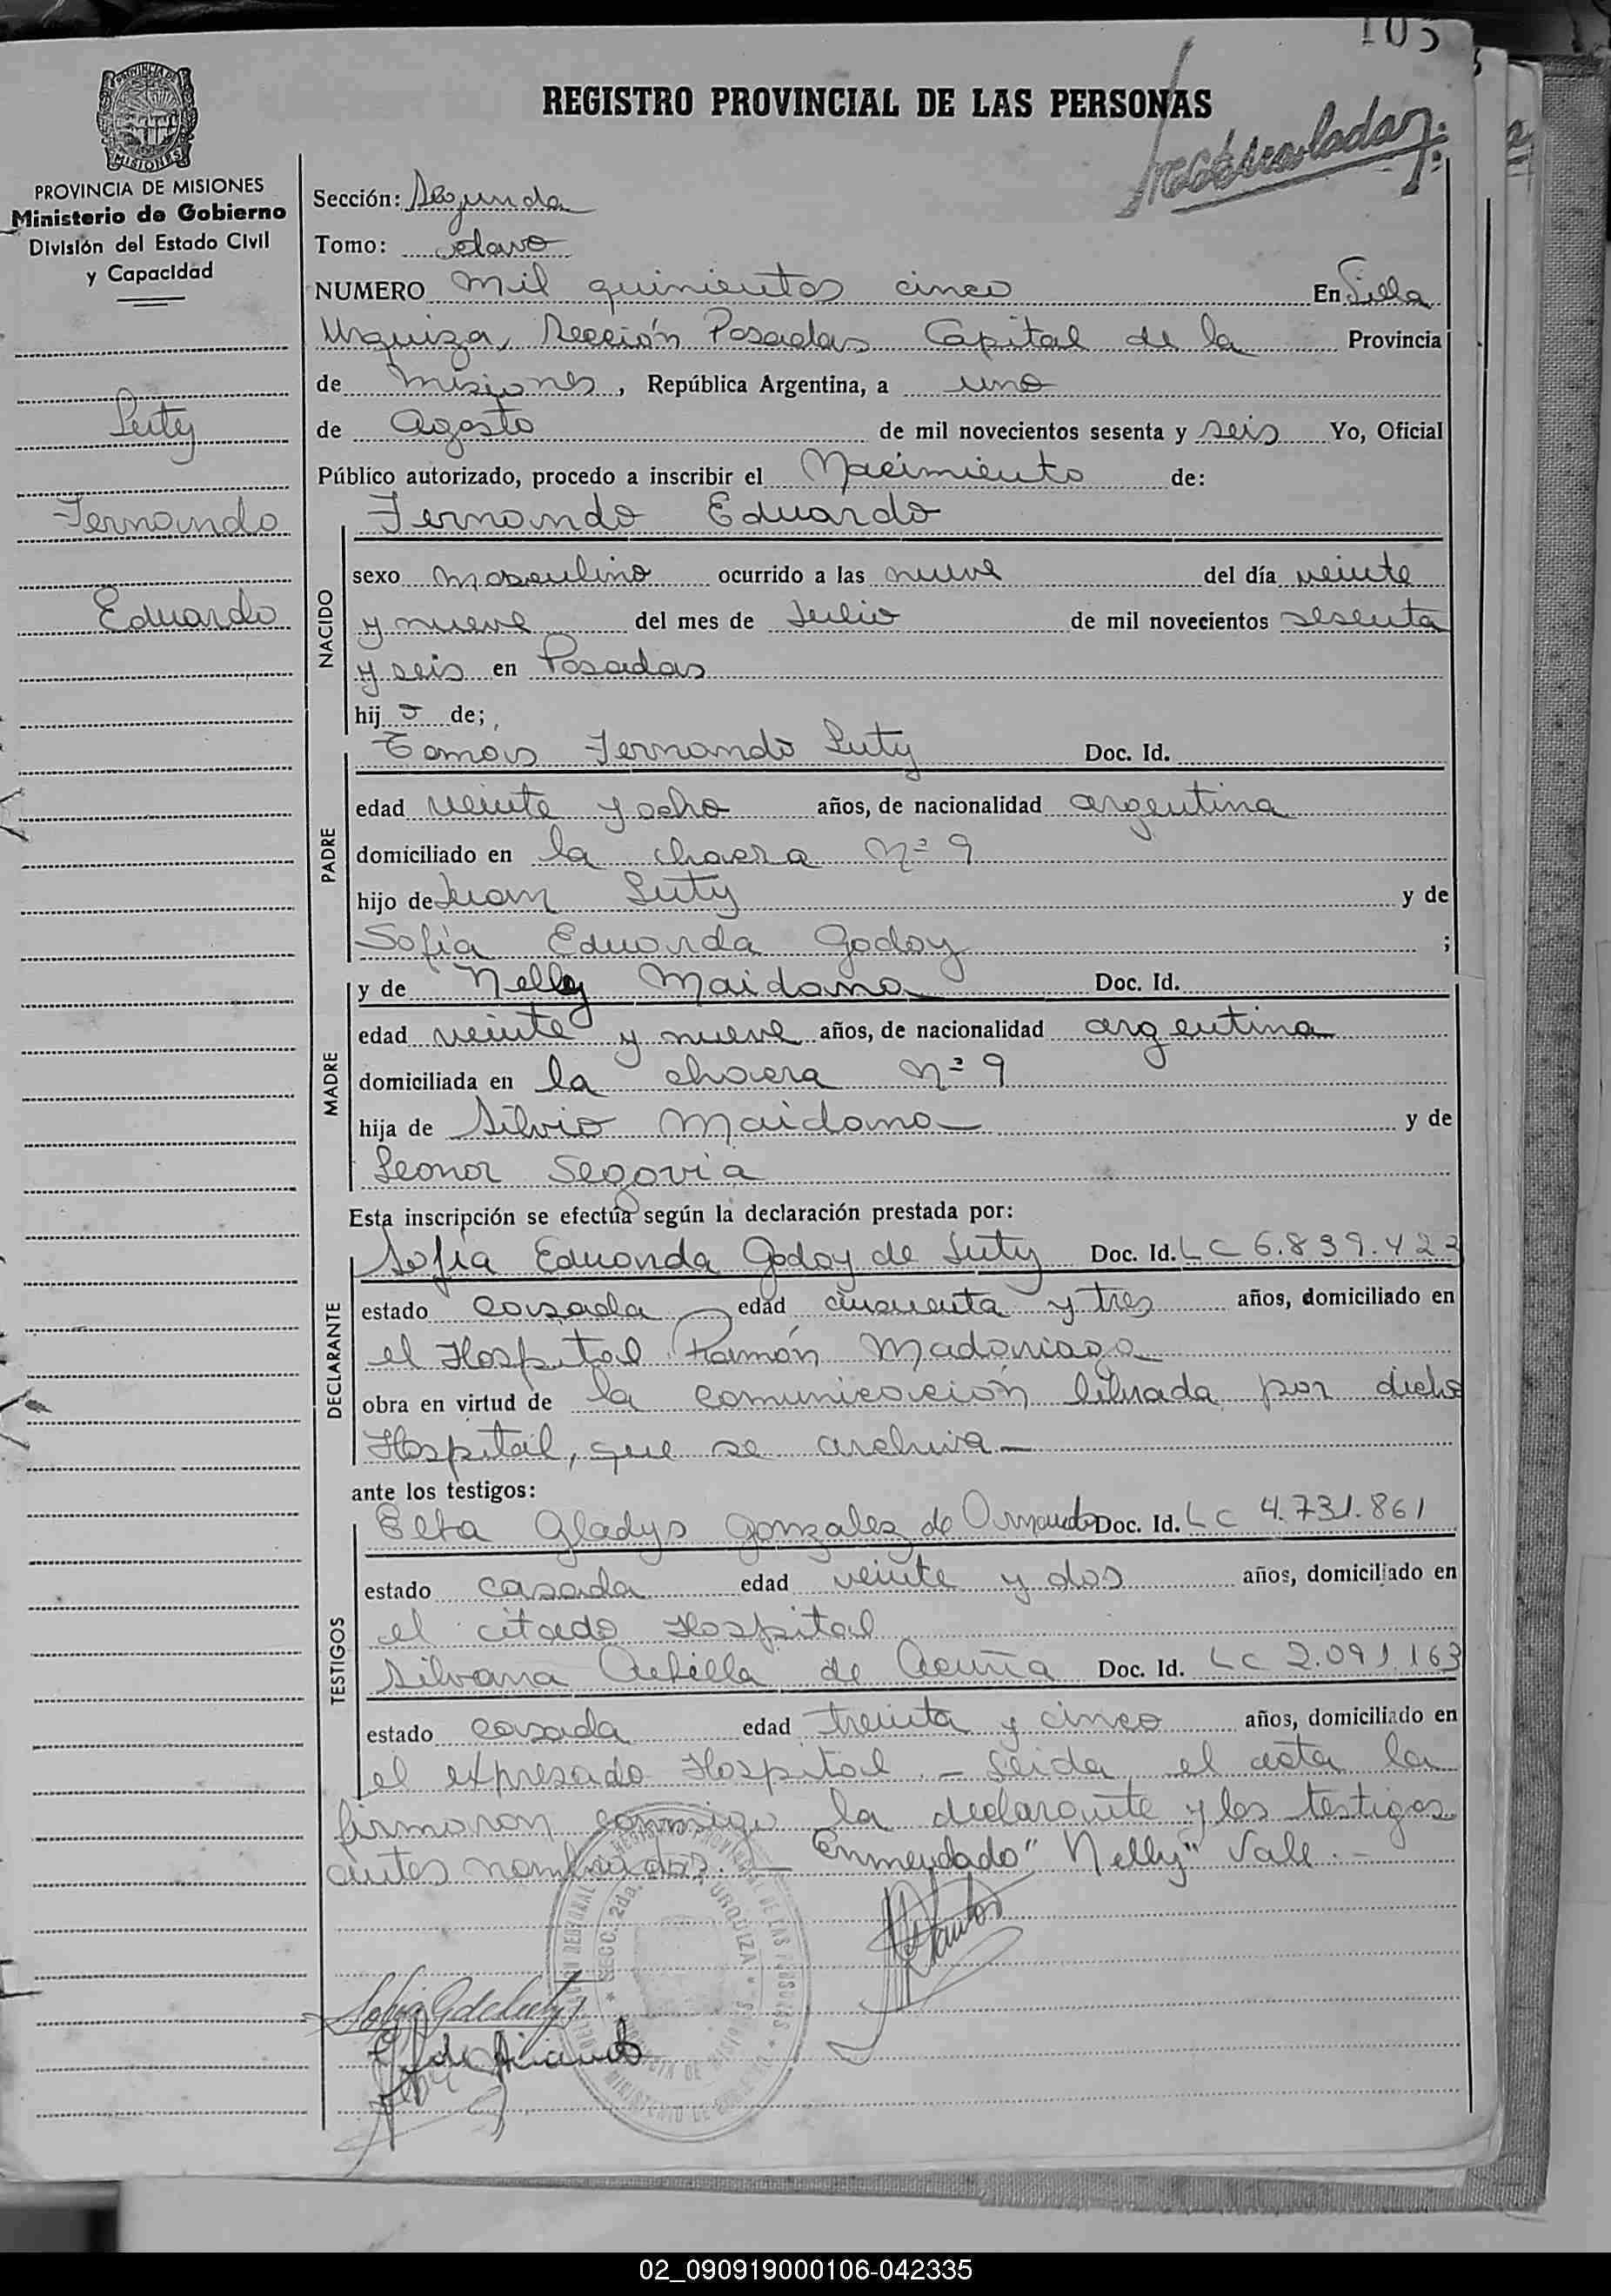 105
REGISTRO PROVINCIAL DE LAS PERSONAS
PROVINCIA DE MISIONES
Ministerio de Gobierno
División del Estado Civil
y Capacidad
Luty
Fernando
Eduardo
Sección: Segunda
Tomo: octavo
NUMERO mil quinientos cinco En Villa
Urquiza, Sección Posadas Capital de la Provincia
de Misiones, República Argentina, a uno
de Agosto de mil novecientos sesenta y seis Yo, Oficial
Público autorizado, procedo a inscribir el Nacimiento de:
Fernando Eduardo
NACIDO
sexo masculino ocurrido a las nueve del día veinte
y nueve del mes de Julio de mil novecientos sesenta
y seis en Posadas
hij o de;
PADRE
Tomás Fernando Luty Doc. Id.
edad veinte y ocho años, de nacionalidad argentina
domiciliado en la chacra nº 9
hijo de Juan Luty y de
Sofía Eduarda Godoy ;
MADRE
y de Nelly Maidana Doc. Id.
edad veinte y nueve años, de nacionalidad argentina
domiciliada en la chacra nº 9
hija de Silvio Maidana y de
Leonor Segovia
Esta inscripción se efectúa según la declaración prestada por:
DECLARANTE
Sofía Eduarda Godoy de Luty Doc. Id. LC 6.839.423
estado casada edad cincuenta y tres años, domiciliado en
el Hospital Ramón Madariaga
obra en virtud de la comunicación librada por dicho
Hospital, que se archiva
ante los testigos:
TESTIGOS
Elta Gladys Gonzalez de Doc. Id. LC 4.731.861
estado casada edad veinte y dos años, domiciliado en
el citado Hospital
Silvana de Acuña Doc. Id. LC 2.091.163
estado casada edad treinta y cinco años, domiciliado en
el expresado Hospital. - Leida el acta la
firmaron conmigo la declarante y los testigos
antes nombrados. - Enmendado "Nelly" Vale. -
SECC. 2da. URQUIZA
Sofia G de Luty
02_090919000106-042335